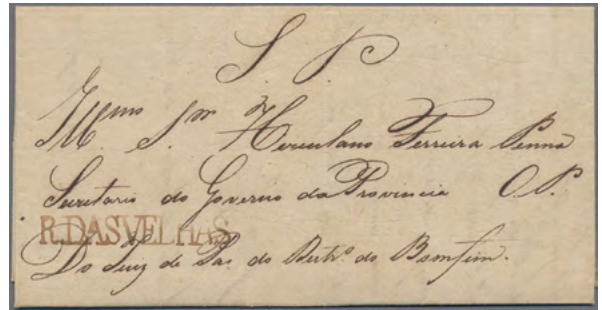 S. P.
Illmo Snr Herculano Ferreira Penna
Secretario do Governo da Provincia O. P.
R.DASVELHAS
Do Juiz de Paz do Distro do Bomfim.